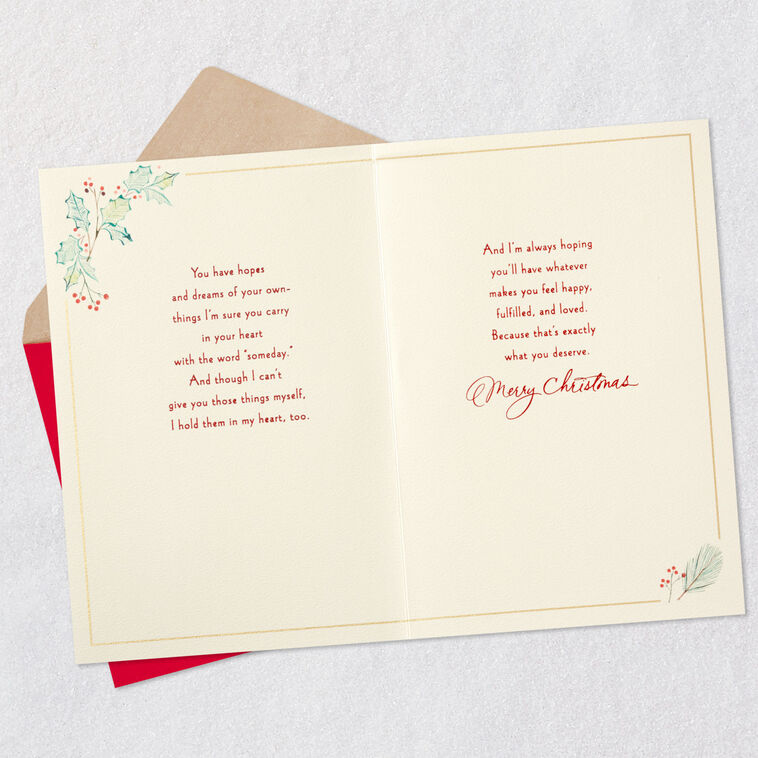 You have hopes
and dreams of your own-
things I'm sure you carry
in your heart
with the word "someday."
And though I can't
give you those things myself,
I hold them in my heart, too.
And I'm always hoping
you'll have whatever
makes you feel happy,
fulfilled, and loved.
Because that's exactly
what you deserve.
Merry Christmas